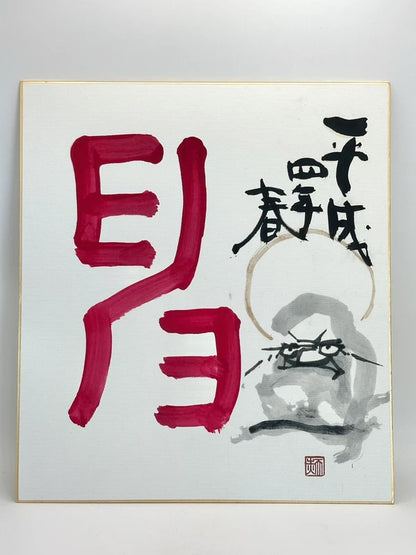 申
平成
四年
春